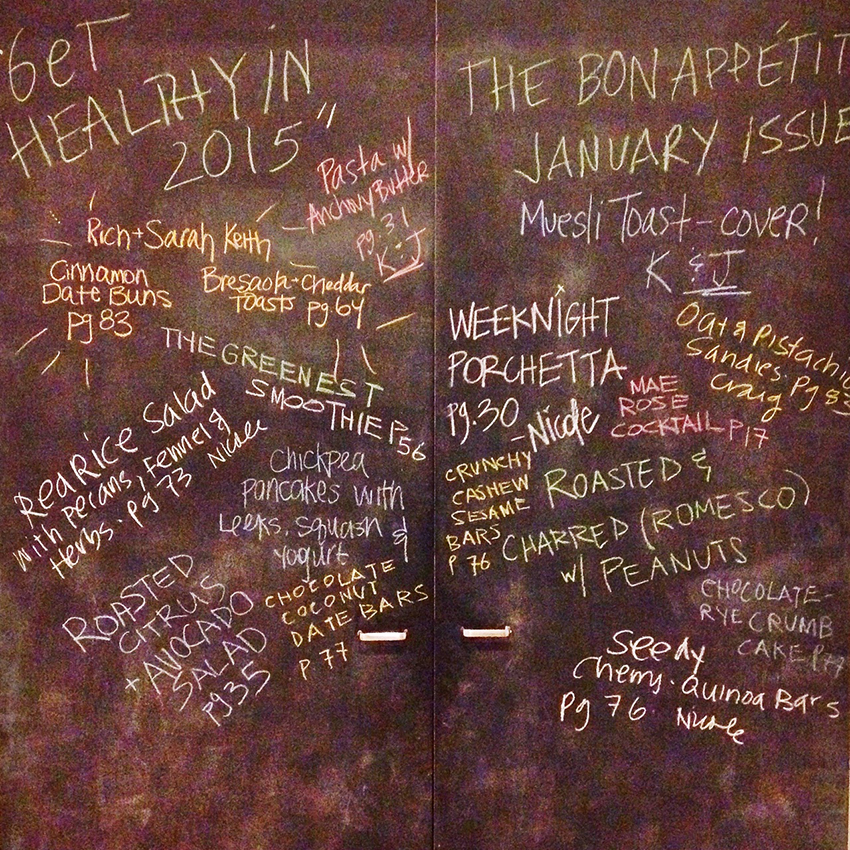 "Get
HEALTHY IN
2015"
Pasta w/
Anchovy Butter
pg. 31
K & J
Rich + Sarah Keith
Cinnamon
Date Buns
pg 83
Bresaola + Cheddar
Toasts pg 64
THE GREENEST
SMOOTHIE P 56
Red Rice Salad
with pecans, Fennel &
Herbs. pg 73 Nicole
Chickpea
pancakes with
Leeks, Squash &
yogurt
ROASTED
CITRUS
+ AVOCADO
SALAD
pg 35
CHOCOLATE
COCONUT
DATE BARS
P 77
THE BON APPÉTIT
JANUARY ISSUE
Muesli Toast - cover!
K & J
WEEKNIGHT
PORCHETTA
pg. 30
- Nicole
Oat & Pistachio
Sandies. Pg 83
Craig
MAE
ROSE
COCKTAIL P 17
CRUNCHY
CASHEW
SESAME
BARS
P 76
ROASTED &
CHARRED (ROMESCO)
w/ PEANUTS
CHOCOLATE-
RYE CRUMB
CAKE P 77
Seedy
Cherry · Quinoa Bars
Pg 76 Nicole